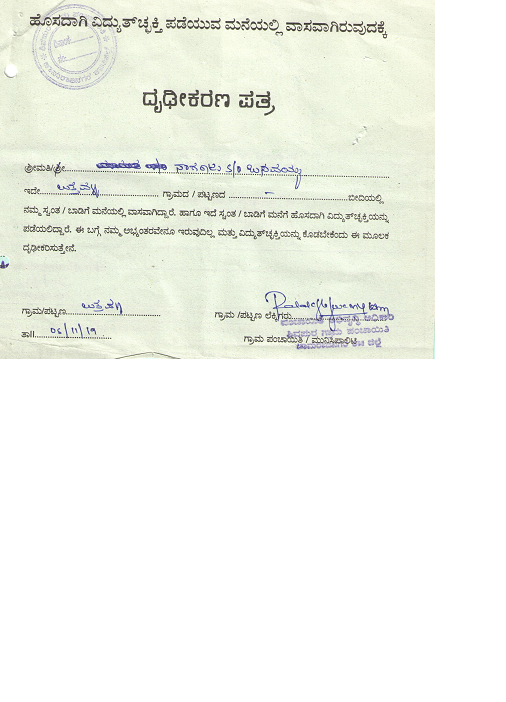 ಹೊಸದಾಗಿ ವಿದ್ಯುತ್‌ಚ್ಛಕ್ತಿ ಪಡೆಯುವ ಮನೆಯಲ್ಲಿ ವಾಸವಾಗಿರುವುದಕ್ಕೆ
ದೃಢೀಕರಣ ಪತ್ರ
ಶ್ರೀಮತಿ/ಶ್ರೀ S/o ಬಸವಯ್ಯ
ಇದೇ ಗ್ರಾಮದ / ಪಟ್ಟಣದ – ಬೀದಿಯಲ್ಲಿ
ನಮ್ಮ ಸ್ವಂತ / ಬಾಡಿಗೆ ಮನೆಯಲ್ಲಿ ವಾಸವಾಗಿದ್ದಾರೆ. ಹಾಗೂ ಇದೆ ಸ್ವಂತ / ಬಾಡಿಗೆ ಮನೆಗೆ ಹೊಸದಾಗಿ ವಿದ್ಯುತ್‌ಚ್ಛಕ್ತಿಯನ್ನು
ಪಡೆಯಲಿದ್ದಾರೆ. ಈ ಬಗ್ಗೆ ನಮ್ಮ ಅಭ್ಯಂತರವೇನೂ ಇರುವುದಿಲ್ಲ ಮತ್ತು ವಿದ್ಯುತ್‌ಚ್ಛಕ್ತಿಯನ್ನು ಕೊಡಬೇಕೆಂದು ಈ ಮೂಲಕ
ದೃಢೀಕರಿಸುತ್ತೇನೆ.
ಗ್ರಾಮ/ಪಟ್ಟಣ
ಗ್ರಾಮ /ಪಟ್ಟಣ ಲೆಕ್ಕಿಗರು
ತಾ|| 06/11/19
ಗ್ರಾಮ ಪಂಚಾಯಿತಿ / ಮುನಿಸಿಪಾಲಿಟಿ